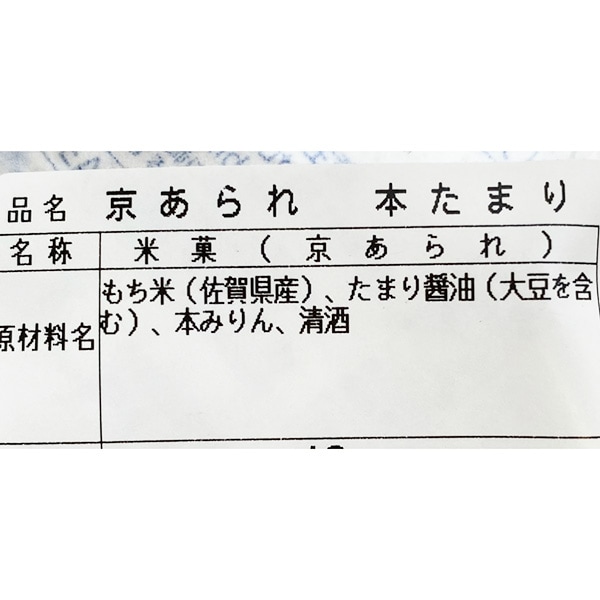 品名 京あられ 本たまり
名称 米菓(京あられ)
原材料名 もち米(佐賀県産)、たまり醤油(大豆を含
む)、本みりん、清酒